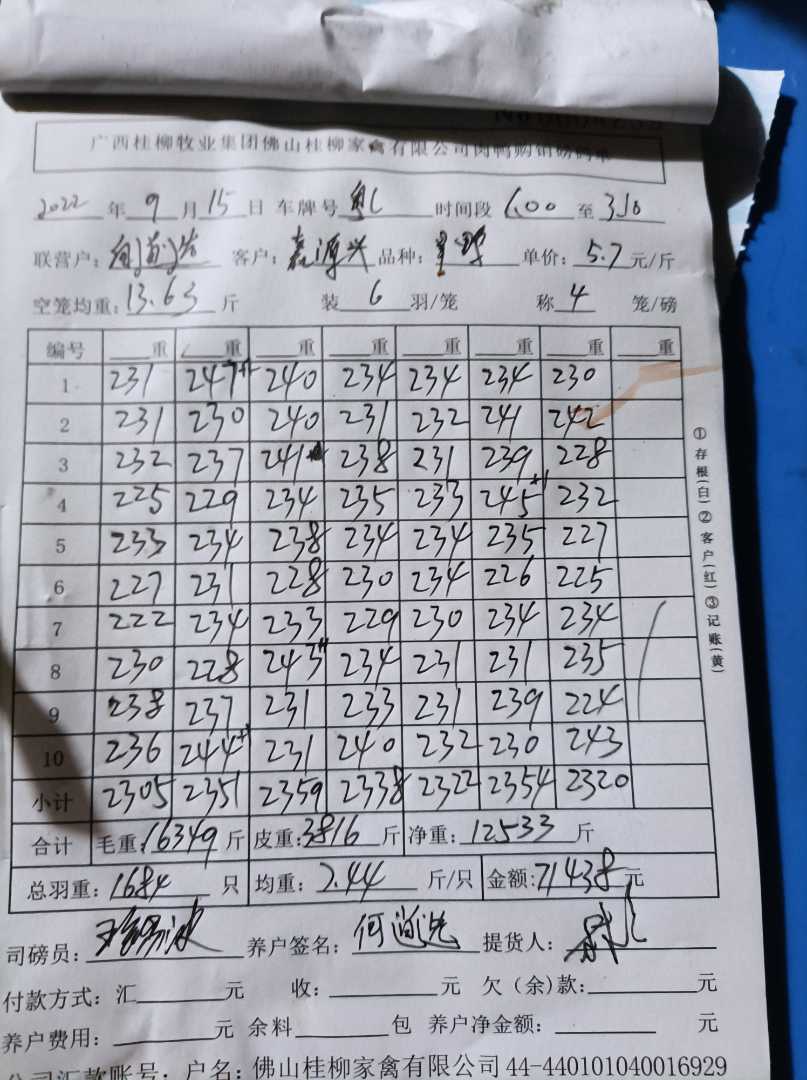 广西桂柳牧业集团佛山桂柳家禽有限公司肉鸭购销磅码单
2022 年 9 月 15 日 车牌号 时间段 6.00 至 3.10
联营户: 客户: 嘉源兴 品种: 单价: 5.7 元/斤
空笼均重: 13.63 斤 装 6 羽/笼 称 4 笼/磅
编号 重 重 重 重 重 重 重 重
1 231 247 240 234 234 234 230
2 231 230 240 231 232 241 242
3 232 237 241 238 231 239 228
4 225 229 234 235 233 245 232
5 233 234 238 234 234 235 227
6 227 231 228 230 234 226 225
7 222 234 233 229 230 234 234
8 230 228 243 234 231 231 235
9 238 237 231 233 231 239 224
10 236 244 231 240 232 230 243
小计 2305 2351 2359 2338 2322 2354 2320
合计 毛重: 16349 斤 皮重: 3816 斤 净重: 12533 斤
总羽重: 1684 只 均重: 7.44 斤/只 金额: 71438 元
司磅员: 养户签名: 提货人:
付款方式: 汇 元 收: 元 欠(余)款: 元
养户费用: 元 余料 包 养户净金额: 元
公司汇款账号: 户名: 佛山桂柳家禽有限公司 44-440101040016929
①存根(白)②客户(红)③记账(黄)